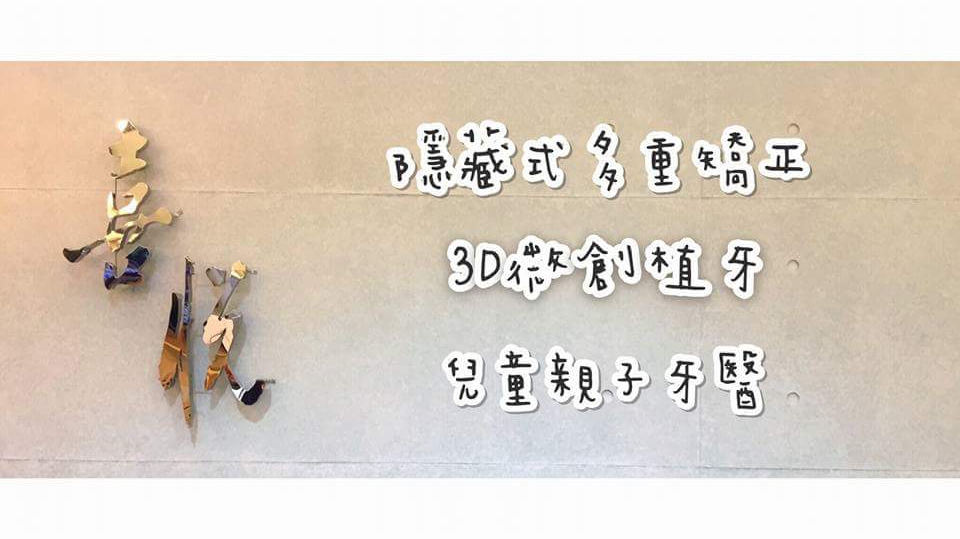 喜悦
隱藏式多重矯正
3D微創植牙
兒童親子牙醫